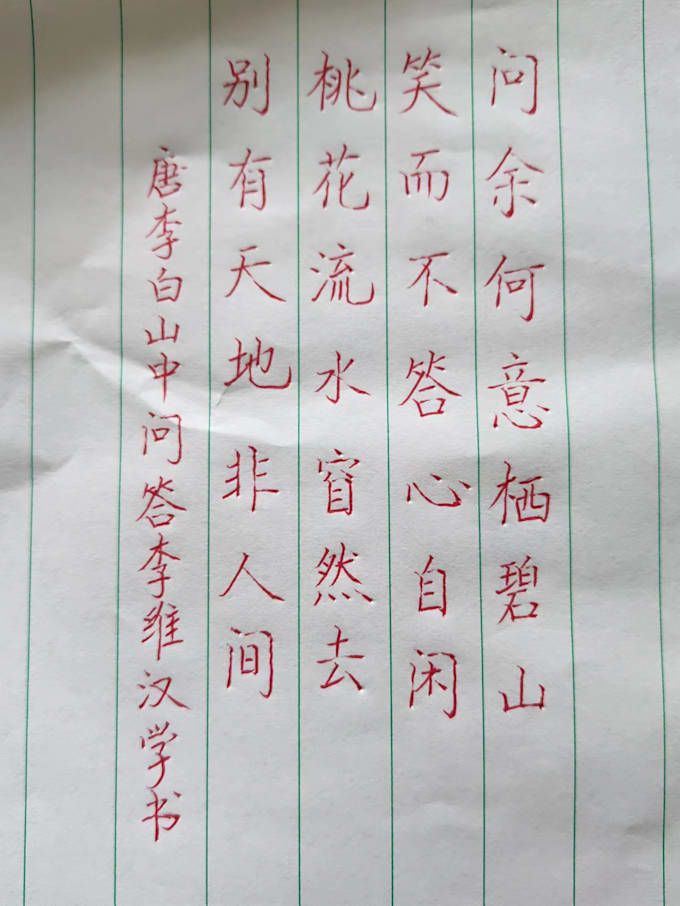 问余何意栖碧山
笑而不答心自闲
桃花流水窅然去
别有天地非人间
唐李白山中问答李维汉学书